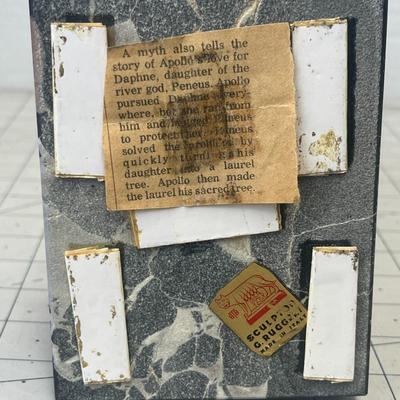 A myth also tells the
story of Apollo's love for
Daphne, daughter of the
river god, Peneus. Apollo
pursued Daphne every-
where, but she ran from
him and begged Peneus
to protect her. Peneus
solved the problem by
quickly turning his
daughter into a laurel
tree. Apollo then made
the laurel his sacred tree.
SCULP
G. RUGG
MADE IN ITALY